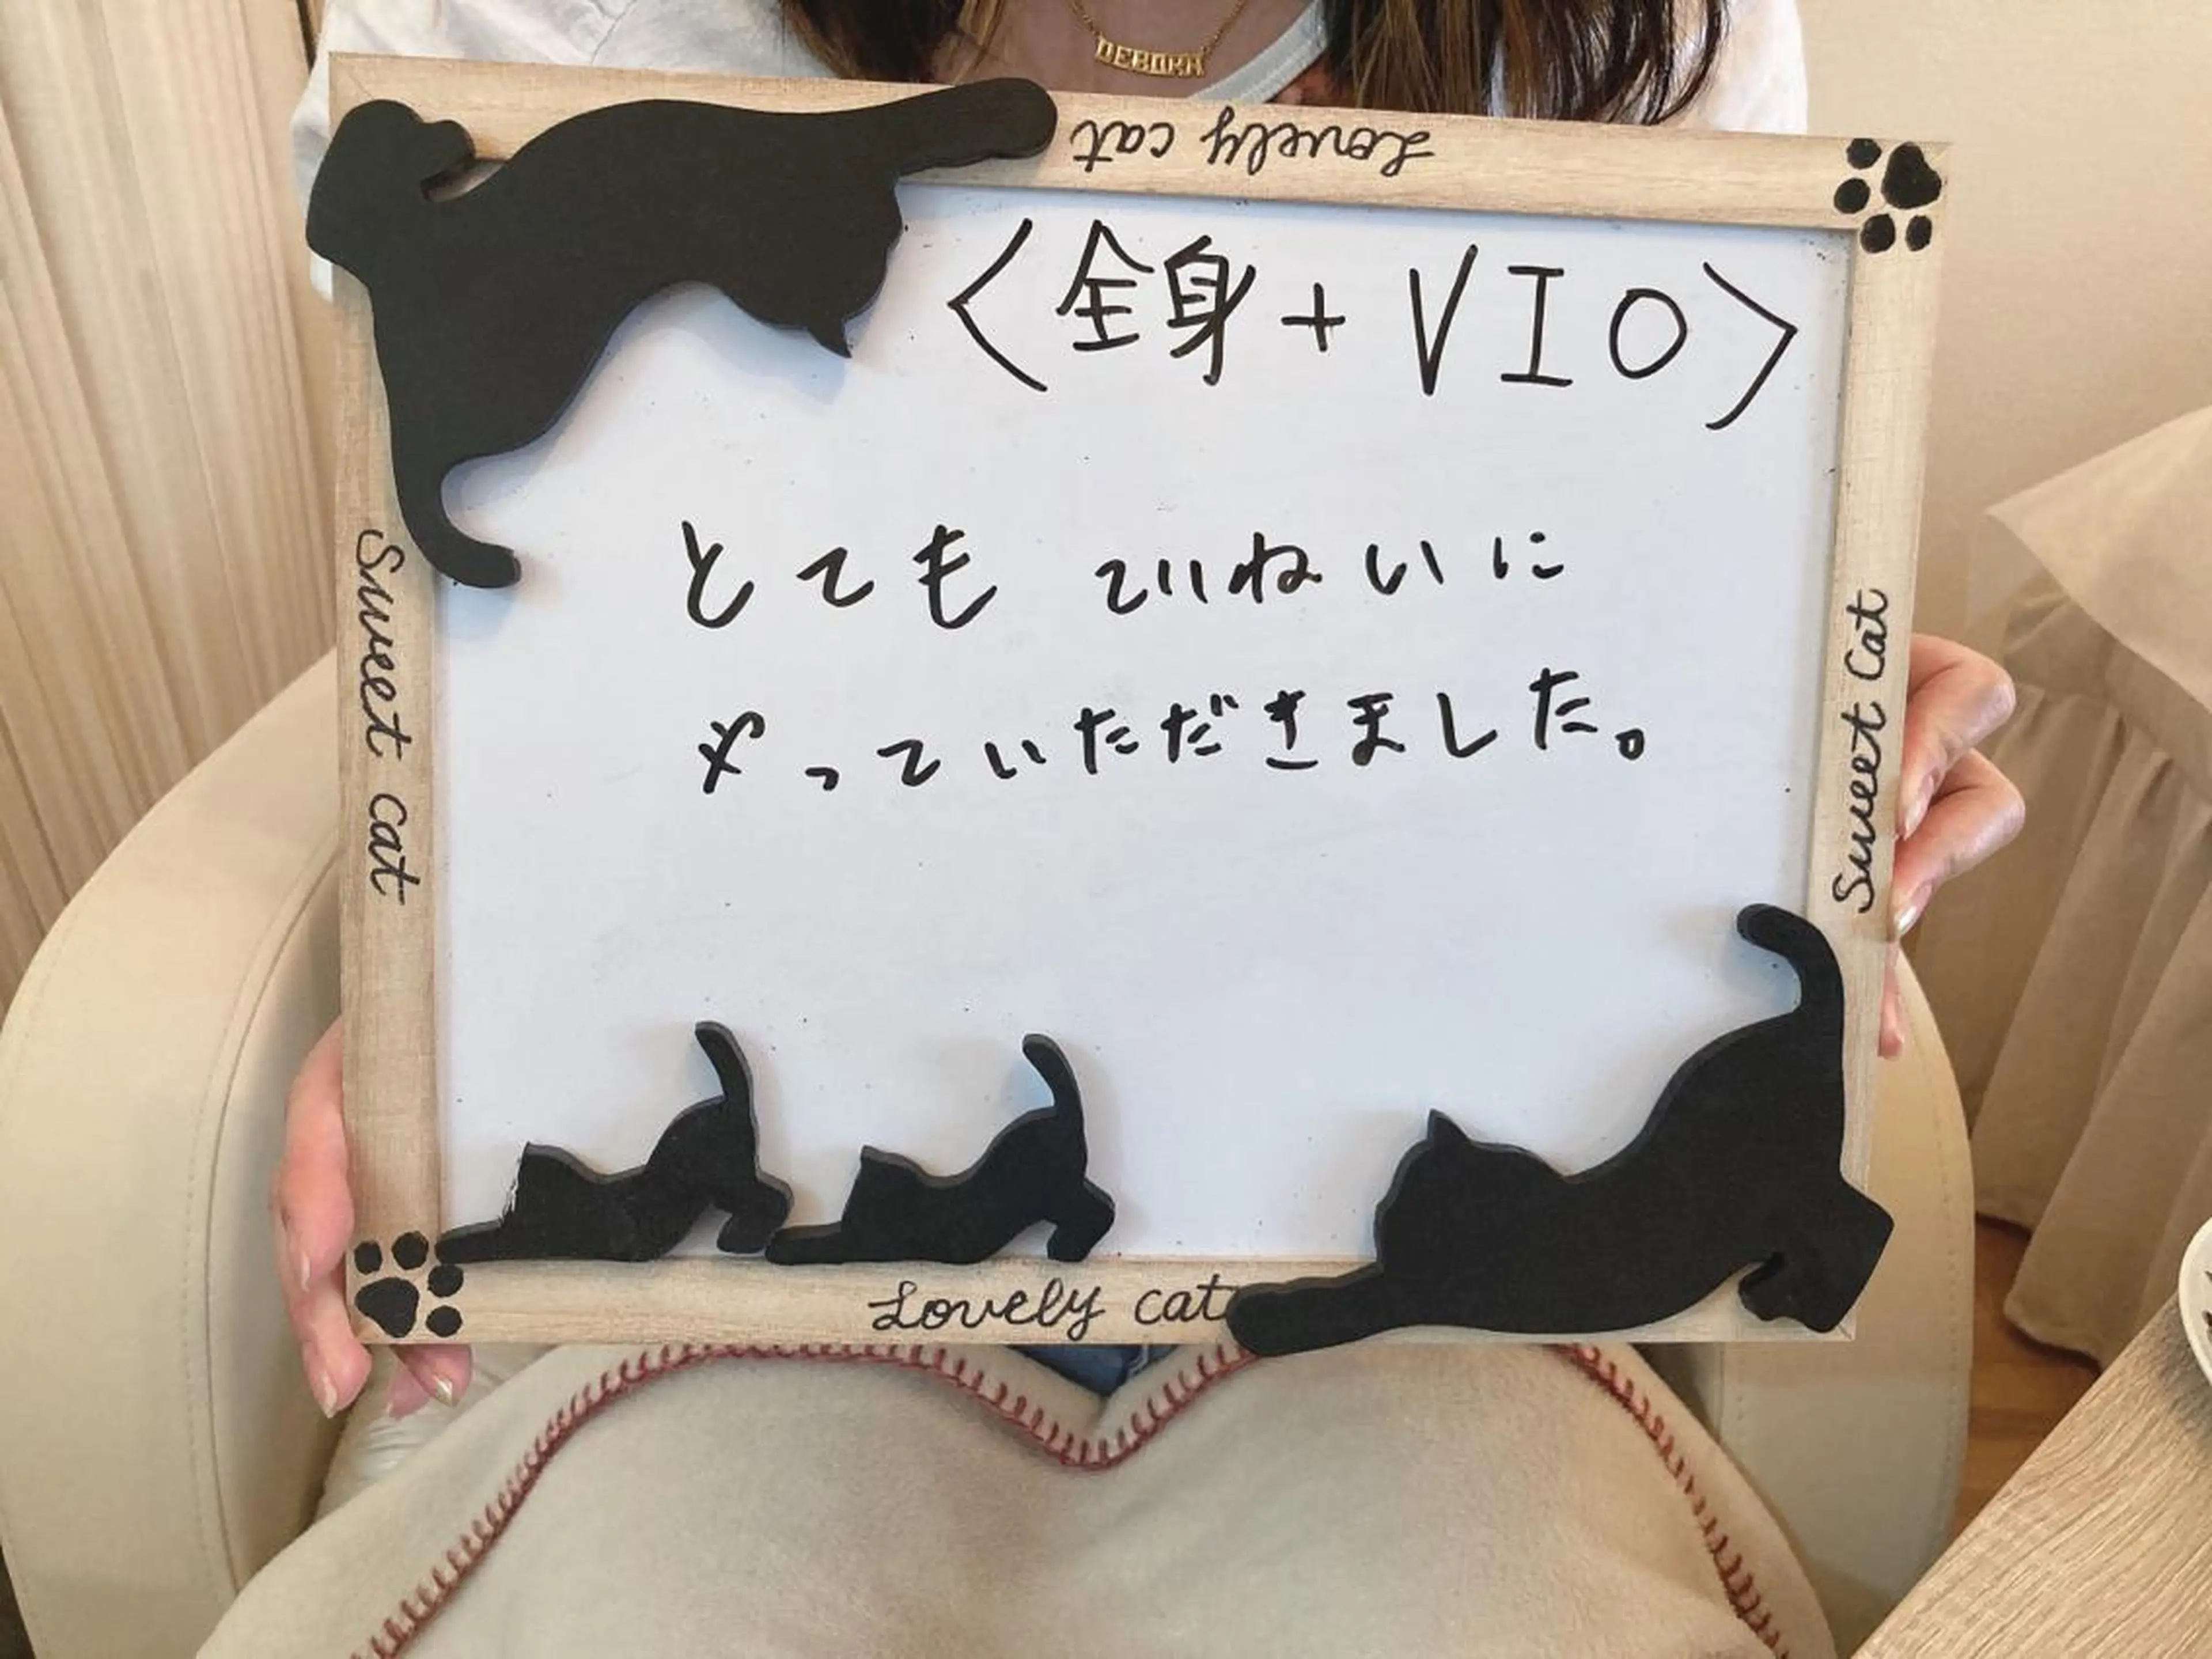 DEBORA
Lovely cat
〈全身+VIO〉
とても ていねいに
やっていただきました。
Sweet cat
Sweet Cat
Lovely cat